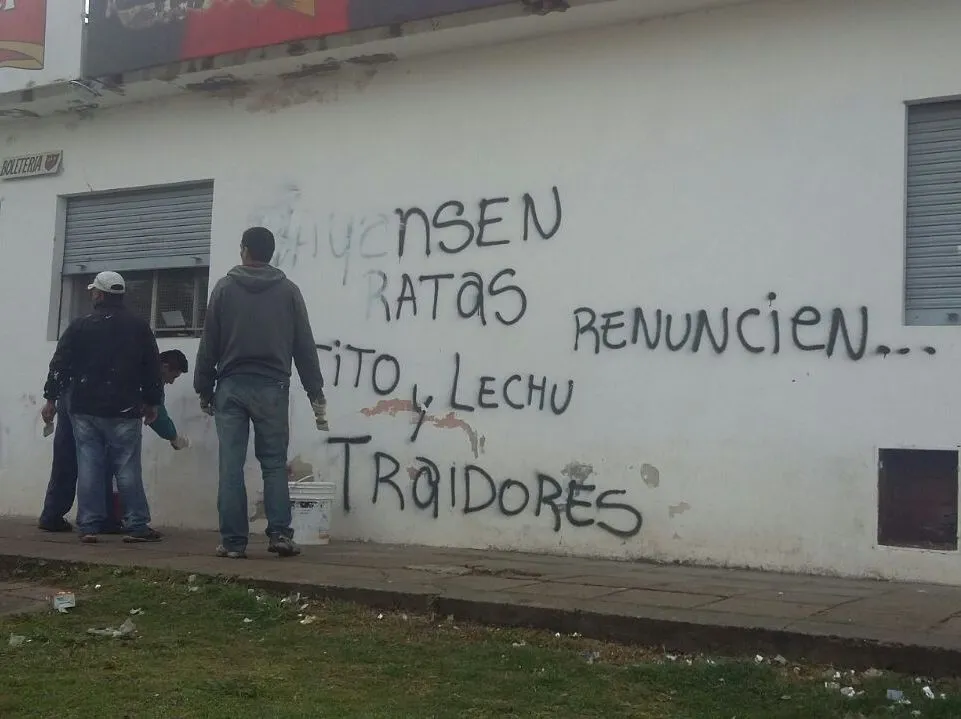 BOLETERIA
VAYAnSEN
RATaS
RENUNCiEN...
TITO, y LECHU
TRaIDORES